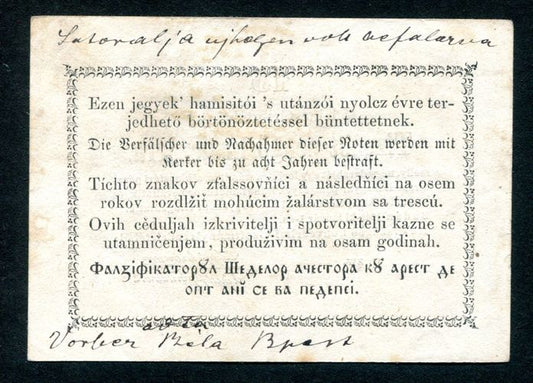 Sátoralja ujhelyen volt befalazva
Ezen jegyek’ hamisitói ’s utánzói nyolcz évre ter-
jedhető börtönöztetéssel büntettetnek.
Die Verfälscher und Nachahmer dieser Noten werden mit
Kerker bis zu acht Jahren bestraft.
Tíchto znakov zfalssovňíci a následňíci na osem
rokov rozdlžiť mohúcim žalárstvom sa trescú.
Ovih cĕduljah izkrivitelji i spotvoritelji kazne se
utamničenjem, produživim na osam godinah.
Фалзіфікаторꙋл Шеделор ачестора кꙋ арест де
опт анĭ се ва педепсі.
Vorber Béla Bpest